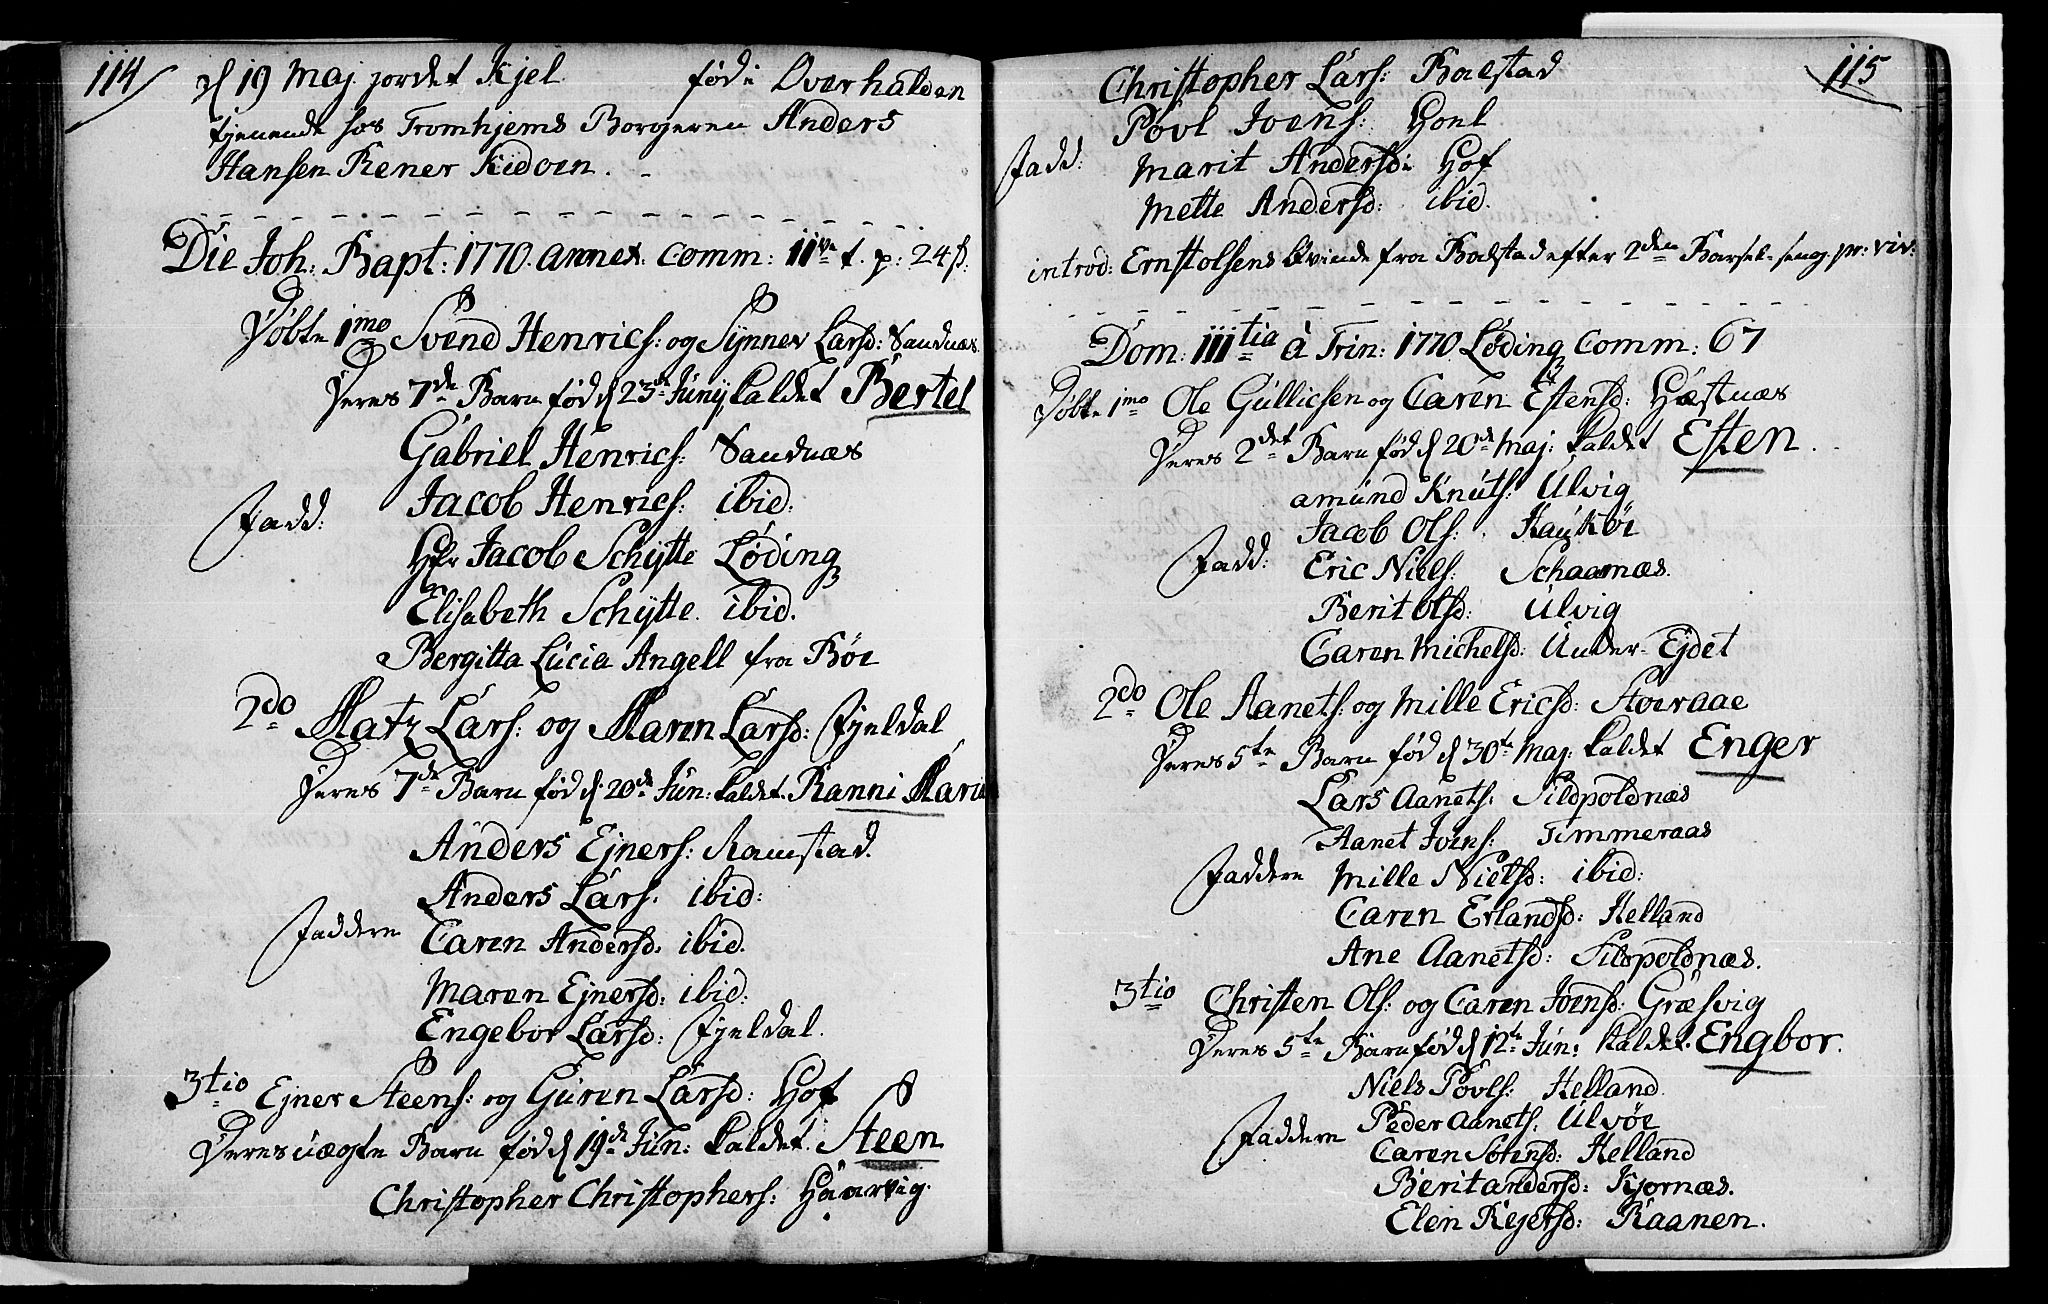 114
d 19 Maj jordet Kjel fød i Overhalden
tjenende hos Tromhjems Borgeren Anders
Hansen Rener Kidøen.
Die Joh: Bapt: 1770. annex. Comm: 11ve t. p: 24 ß.
Døbte 1mo Svend Henrics: og Synnev Larsd: Sandnæs
Deres 7de Barn fød d 23de Junij kaldet Bertel
Gabriel Henrics: Sandnæs
Jacob Henrics: ibid:
Fadd:
Hr Jacob Schytte Løding
Elisabeth Schytte ibid.
Bergitta Lucia Angell fra Bøe
2do Matz Lars: og Maren Larsd: Fjeldal
Deres 7de Barn fød d. 20de Jun: kaldet Ranni Maria
Anders Ejners: Ramstad.
Anders Lars: ibid:
Faddere
Caren Andersd: ibid.
Maren Ejnersd: ibid:
Engebor Larsd: Fjeldal.
3tio Ejner Steens: og Guren Larsd: Hof
Deres uægte Barn fød d 19de Jun: kaldet Steen
Christopher Christophers: Haarvig.
115
Christopher Lars: Baestad
Povl Joens: Hoel
Fadd: Marit Andersd: Hof
Mette Andersd: ibid.
introd: Ernst Olsens Qvinde fra Baestad efter 2den Barsel-seng. pr: viv:
Dom: IIItia à Trin: 1770 Løding Comm: 67
Døbte 1mo Ole Gullicsen og Caren Estensd: Hæstnæs
Deres 2det Barn fød d 20de Maj: kaldet Esten.
Amund Knuts: Ulvig
Jacob Ols: Haukøe
Fadd: Eric Niels: Schaanæs.
Berit Olsd: Ulvig
Caren Michelsd: Under-Ejdet
2do Ole Aanets: og Mille Ericsd: Storaae
Deres 5te Barn fød d 30te Maj: kaldet Enger
Lars Aanets: Sildpoldnæs
Aanet Joens: Timmeraas
Faddere Mille Nielsd: ibid:
Caren Erlandsd: Helland
Ane Aanetsd: Sildpoldnæs.
3tio Christen Ols: og Caren Joensd: Græsvig
Deres 5te Barn fød d 12te Jun: kaldet Engbor.
Niels Povls: Helland
Faddere Peder Aanets: Ulvøe
Caren Sørensd: Helland
Berit Andersd: Kjornæs.
Elen Rejersd: Raanen.